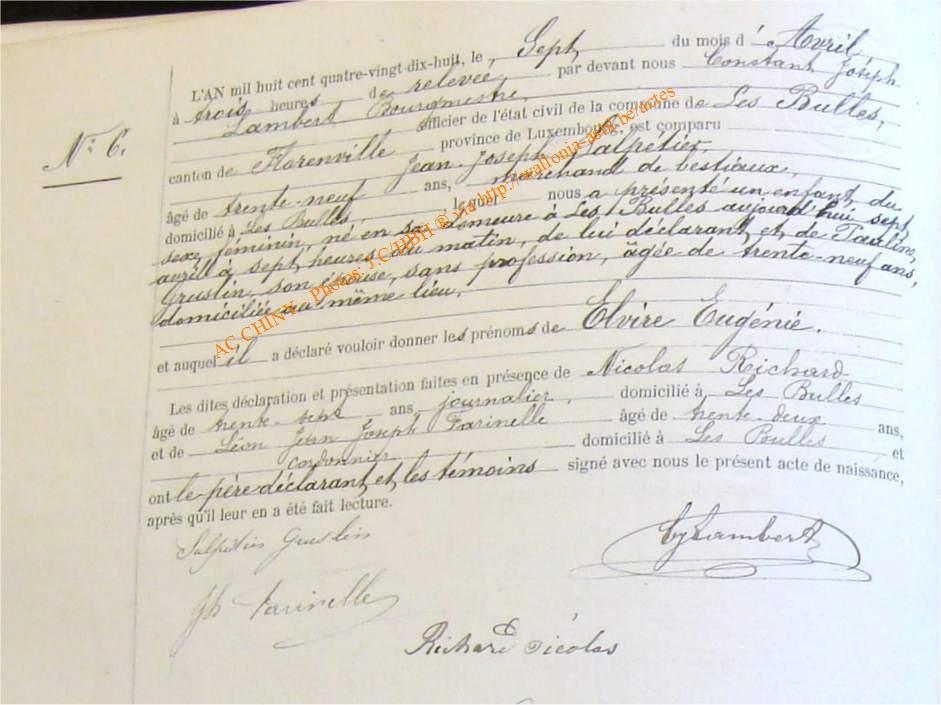 L'AN mil huit cent quatre-vingt-dix-huit, le, Sept du mois d' Avril
à trois heures de relevée, par devant nous Constant Joseph
Lambert, Bourgmestre,
officier de l'état civil de la commune de Les Bulles,
N° 6.
canton de Florenville province de Luxembourg, est comparu
Jean-Joseph Salpétier,
âgé de trente-neuf ans, marchand de bestiaux,
domicilié à Les Bulles, lequel nous a présenté un enfant, du
sexe féminin, né en sa demeure à Les Bulles aujourd'hui sept
avril à sept heures du matin, de lui déclarant et de Pauline
Gruslin, son épouse, sans profession, âgée de trente-neuf ans,
domiciliée au même lieu,
et auquel il a déclaré vouloir donner les prénoms de Elvire Eugénie.
Les dites déclaration et présentation faites en présence de Nicolas Richard
âgé de trente-sept ans, journalier, domicilié à Les Bulles
et de Léon Jean Joseph Farinelle âgé de trente-deux ans,
cordonnier domicilié à Les Bulles et
ont le père déclarant et les témoins signé avec nous le présent acte de naissance,
après qu'il leur en a été fait lecture.
Salpétier Gruslin
CJLambert
Jh Farinelle
Richard Nicolas
AC CHINY - Photos: J.C/HBH ® via http://wallonia-asbl.be/actes